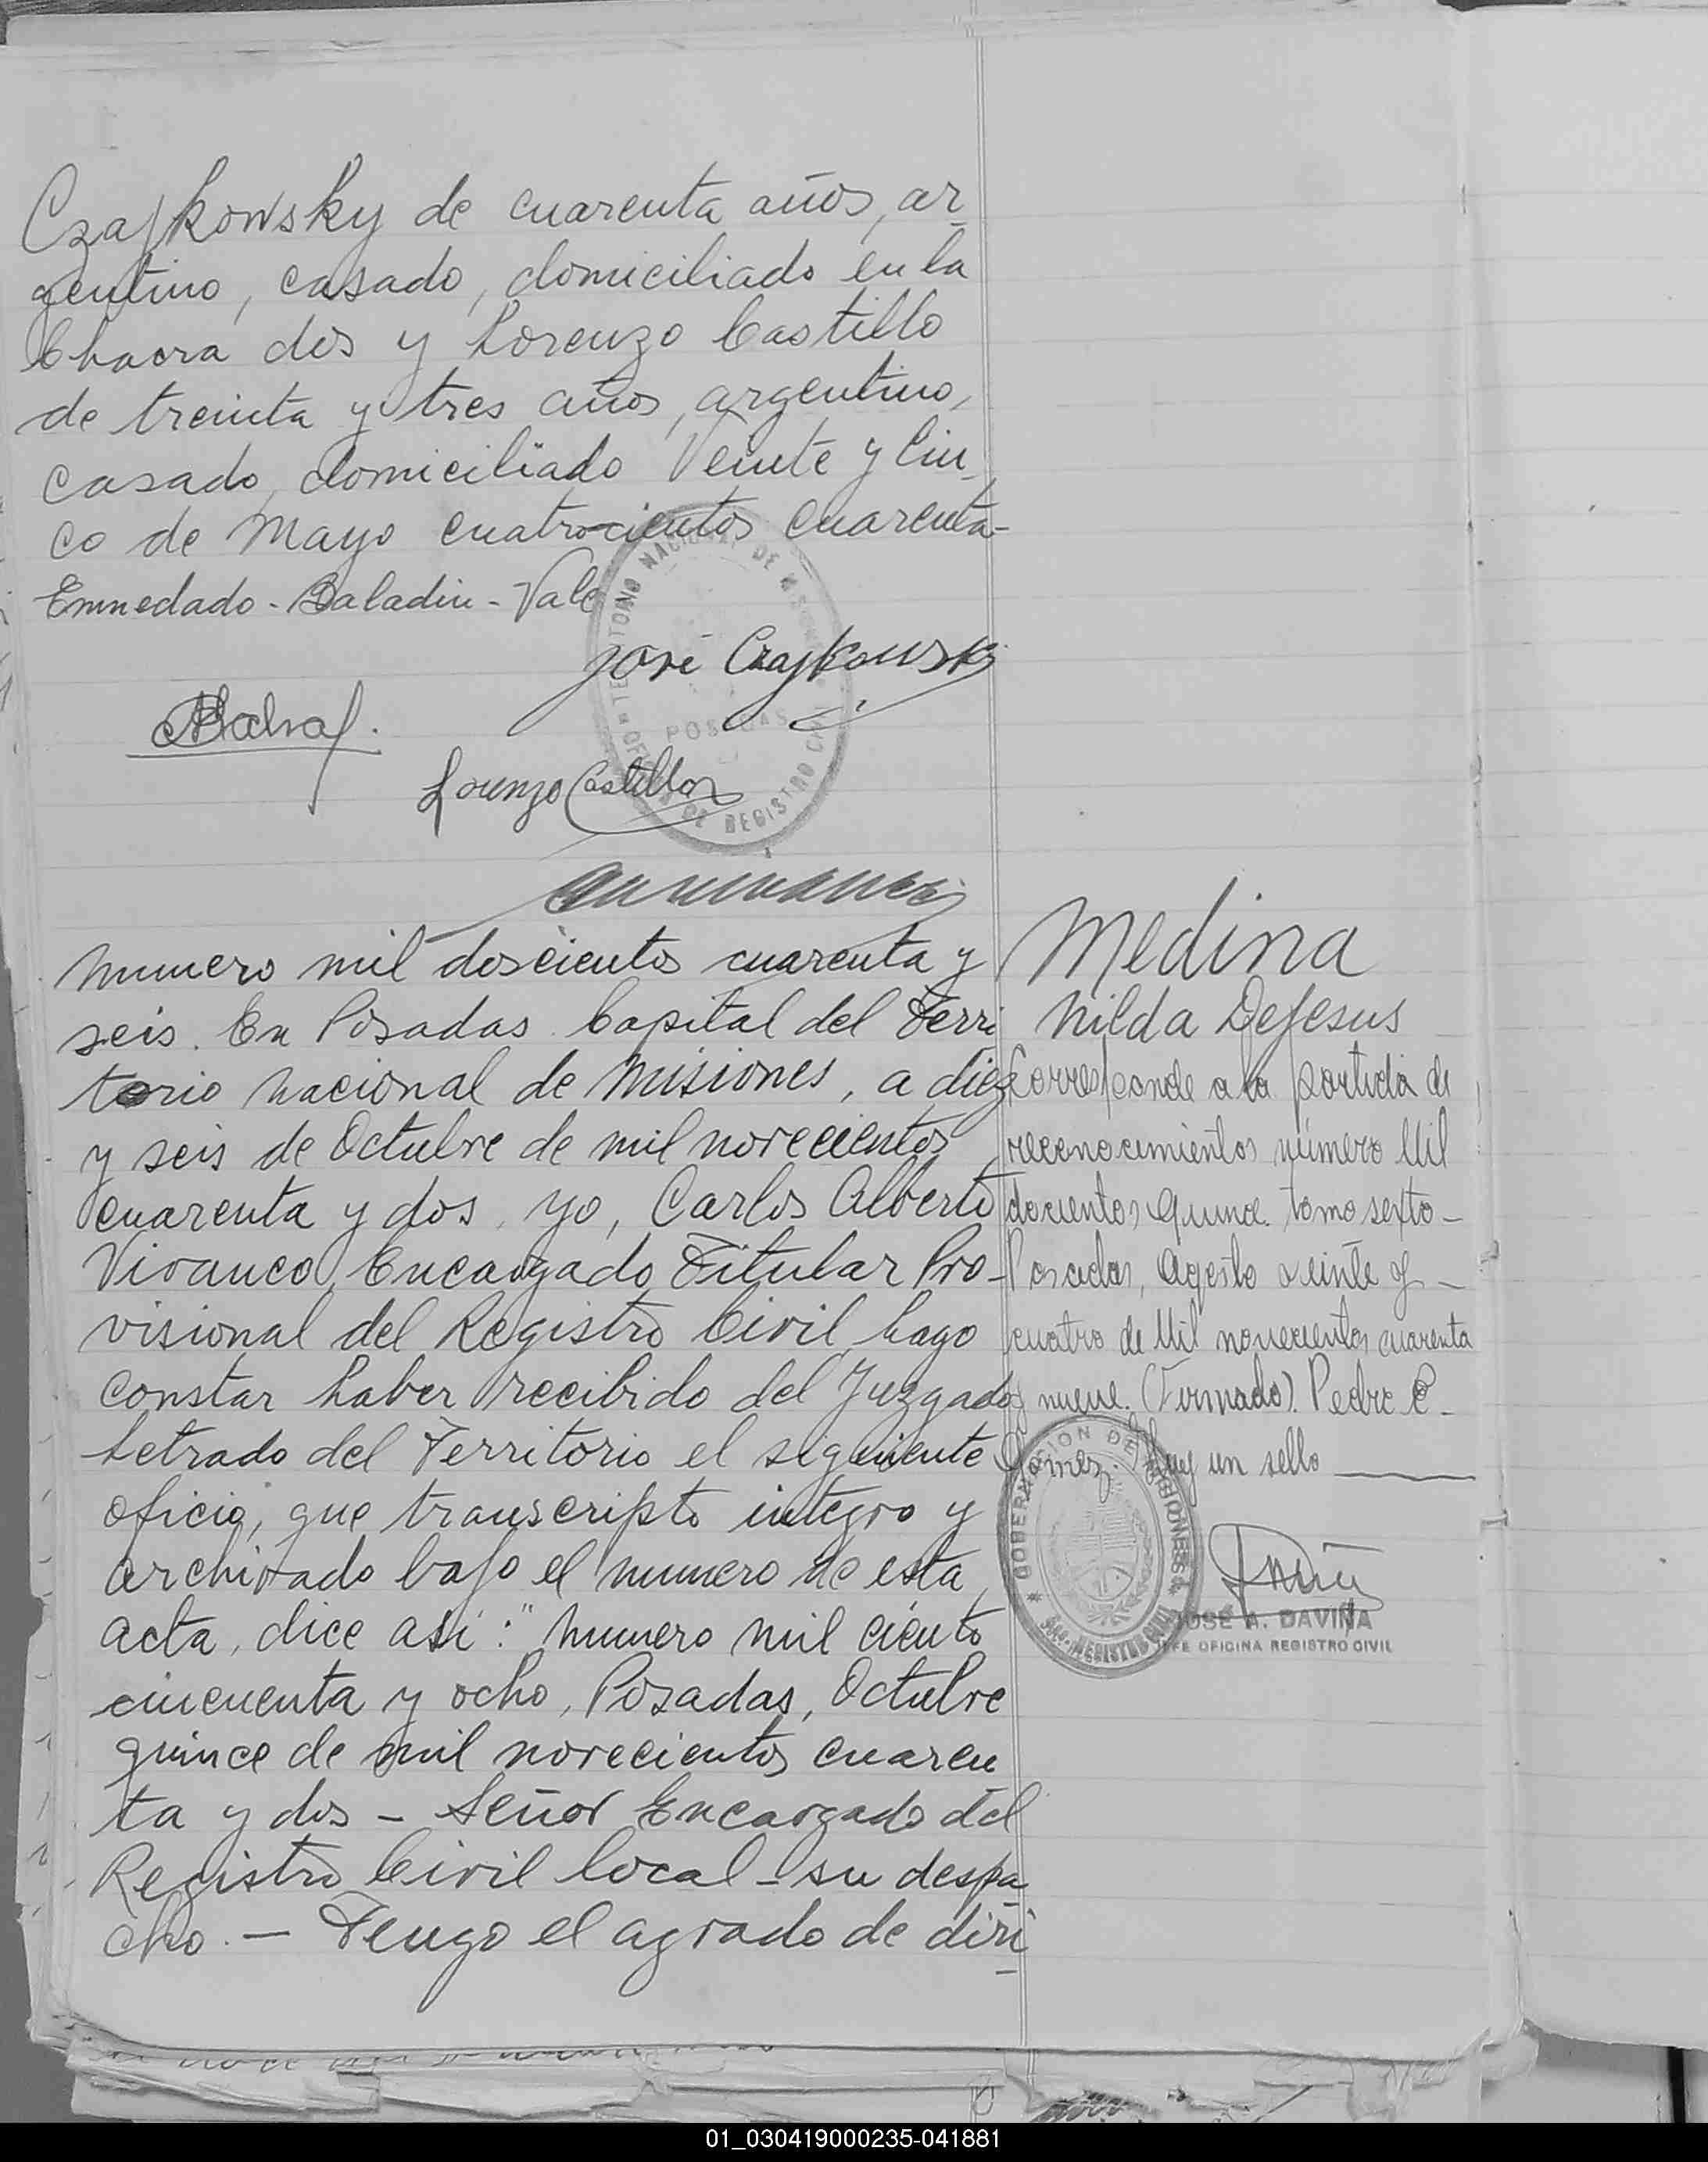 Czajkowsky de cuarenta años, ar
gentino, casado, domiciliado en la
Chacra dos y Lorenzo Castillo
de treinta y tres años, argentino,
casado, domiciliado Veinte y Cin
co de Mayo cuatrocientos cuarenta-
Enmedado - Baladin - Vale
José Czajkowski
Lorenzo Castillo
TERRITORIO NACIONAL DE MISIONES
POSADAS
OFICINA DE REGISTRO CIVIL
Numero mil doscientos cuarenta y
seis. En Posadas Capital del Terri
torio Nacional de Misiones, a diez
y seis de Octubre de mil novecientos
cuarenta y dos, yo, Carlos Alberto
Vivanco, Encargado Titular Pro-
visional del Registro Civil, hago
constar haber recibido del Juzgado
Letrado del Territorio el siguiente
oficio, que transcripto integro y
archivado bajo el numero de esta
acta, dice asi: "Numero mil ciento
cincuenta y ocho, Posadas, Octubre
quince de mil novecientos cuaren
ta y dos - Señor Encargado del
Registro Civil local - su despa
cho. - Tengo el agrado de diri
Medina
Nilda Dejesus
Corresponde a la partida de
reconocimientos número Mil
docientos quince. tomo sexto -
Posadas, Agosto veinte y -
cuatro de Mil novecientos cuarenta
y nueve. (Firmado). Pedro C. -
Gomez. Hay un sello
GOBERNACION DE MISIONES
REGISTRO CIVIL
JOSE A. DAVIÑA
JEFE OFICINA REGISTRO CIVIL
01_030419000235-041881